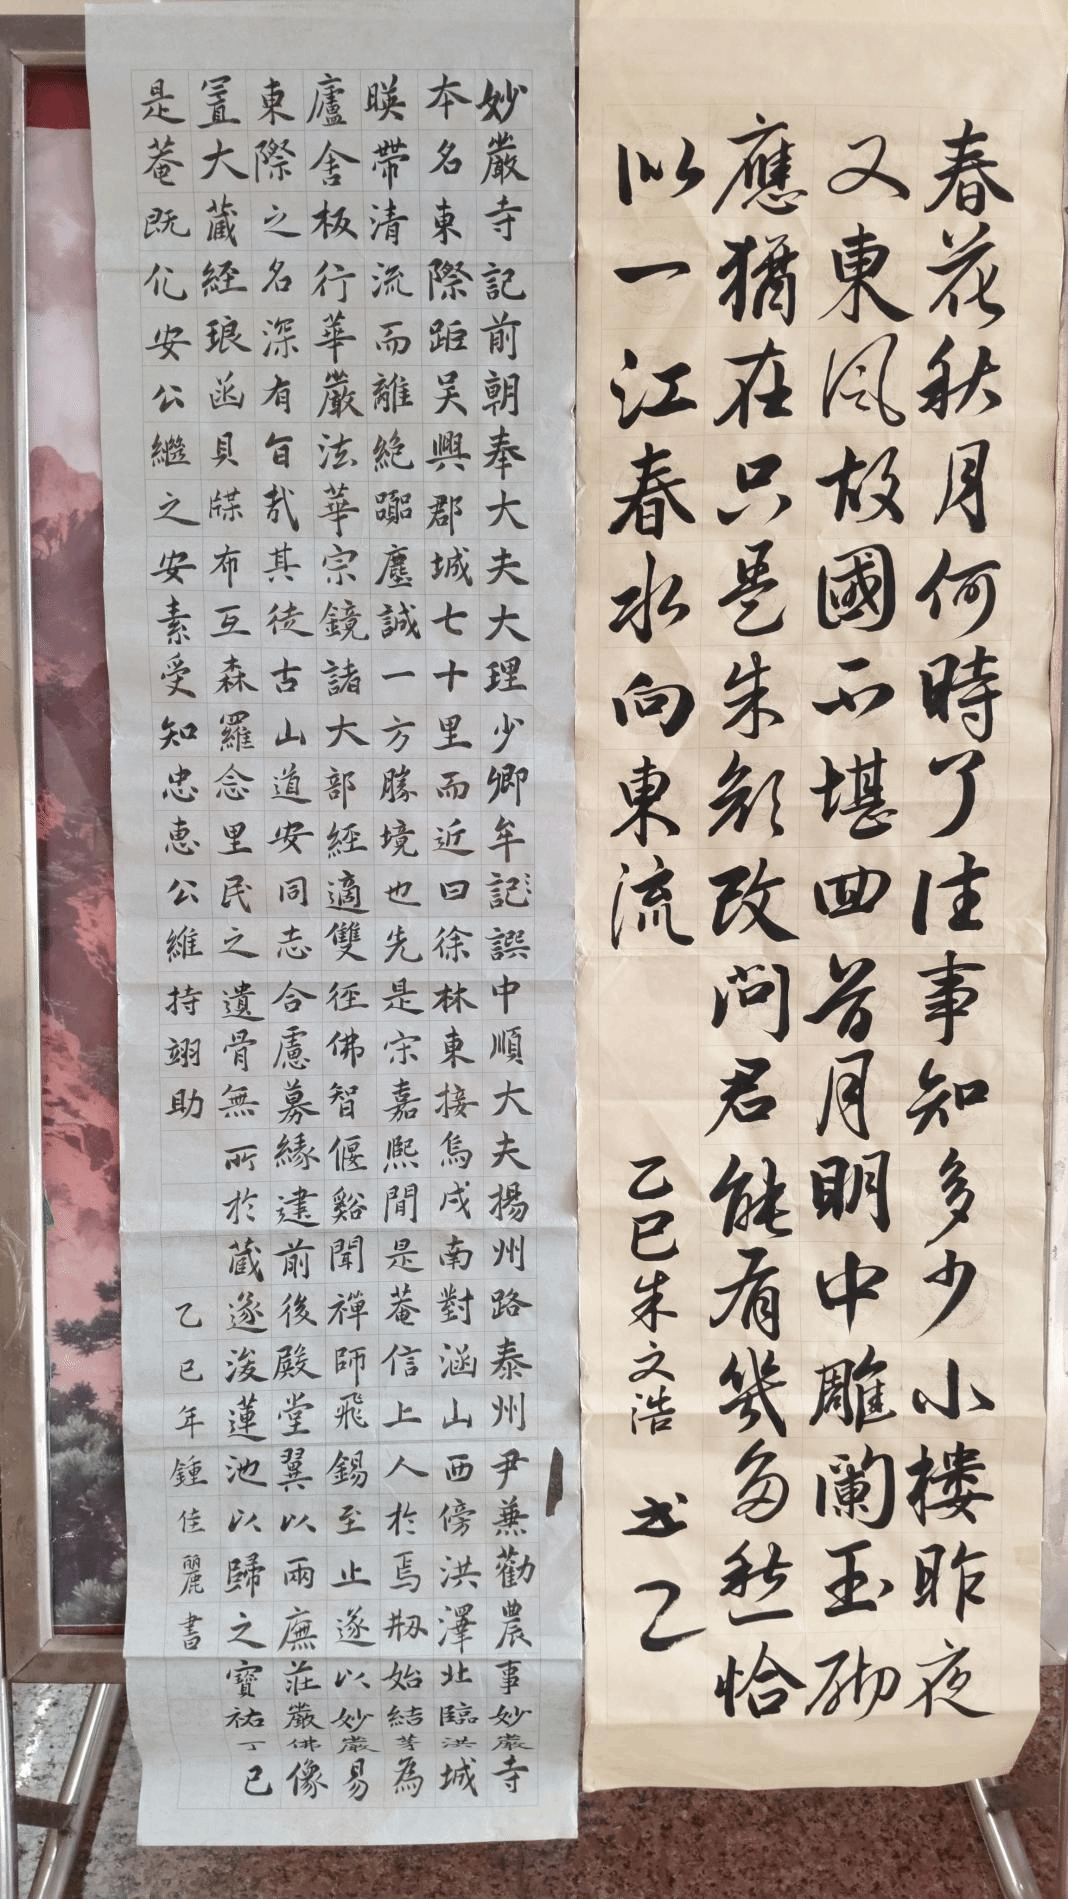 春花秋月何時了往事知多少小楼昨夜
又東风故國不堪回首月明中雕闌玉砌
應猶在只是朱顔改问君能有幾多愁恰
似一江春水向東流
乙巳朱文浩书之
妙嚴寺記前朝奉大夫大理少卿牟記譔中順大夫揚州路泰州尹兼勸農事妙嚴寺
本名東際距吴興郡城七十里而近曰徐林東接烏戌南對涵山西傍洪澤北臨洪城
暎帶清流而離絶囂塵誠一方勝境也先是宋嘉熙間是菴信上人於焉剏始結茅為
廬舍板行華嚴法華宗鏡諸大部經適雙徑佛智偃谿聞禪師飛錫至止遂以妙嚴易
東際之名深有旨哉其徒古山道安同志合慮募緣建前後殿堂翼以兩廡莊嚴佛像
置大藏經琅函貝牒布互森羅念里民之遺骨無所於藏遂浚蓮池以歸之寶祐丁巳
是菴既化安公繼之安素受知忠惠公維持翊助
乙巳年鍾佳麗書